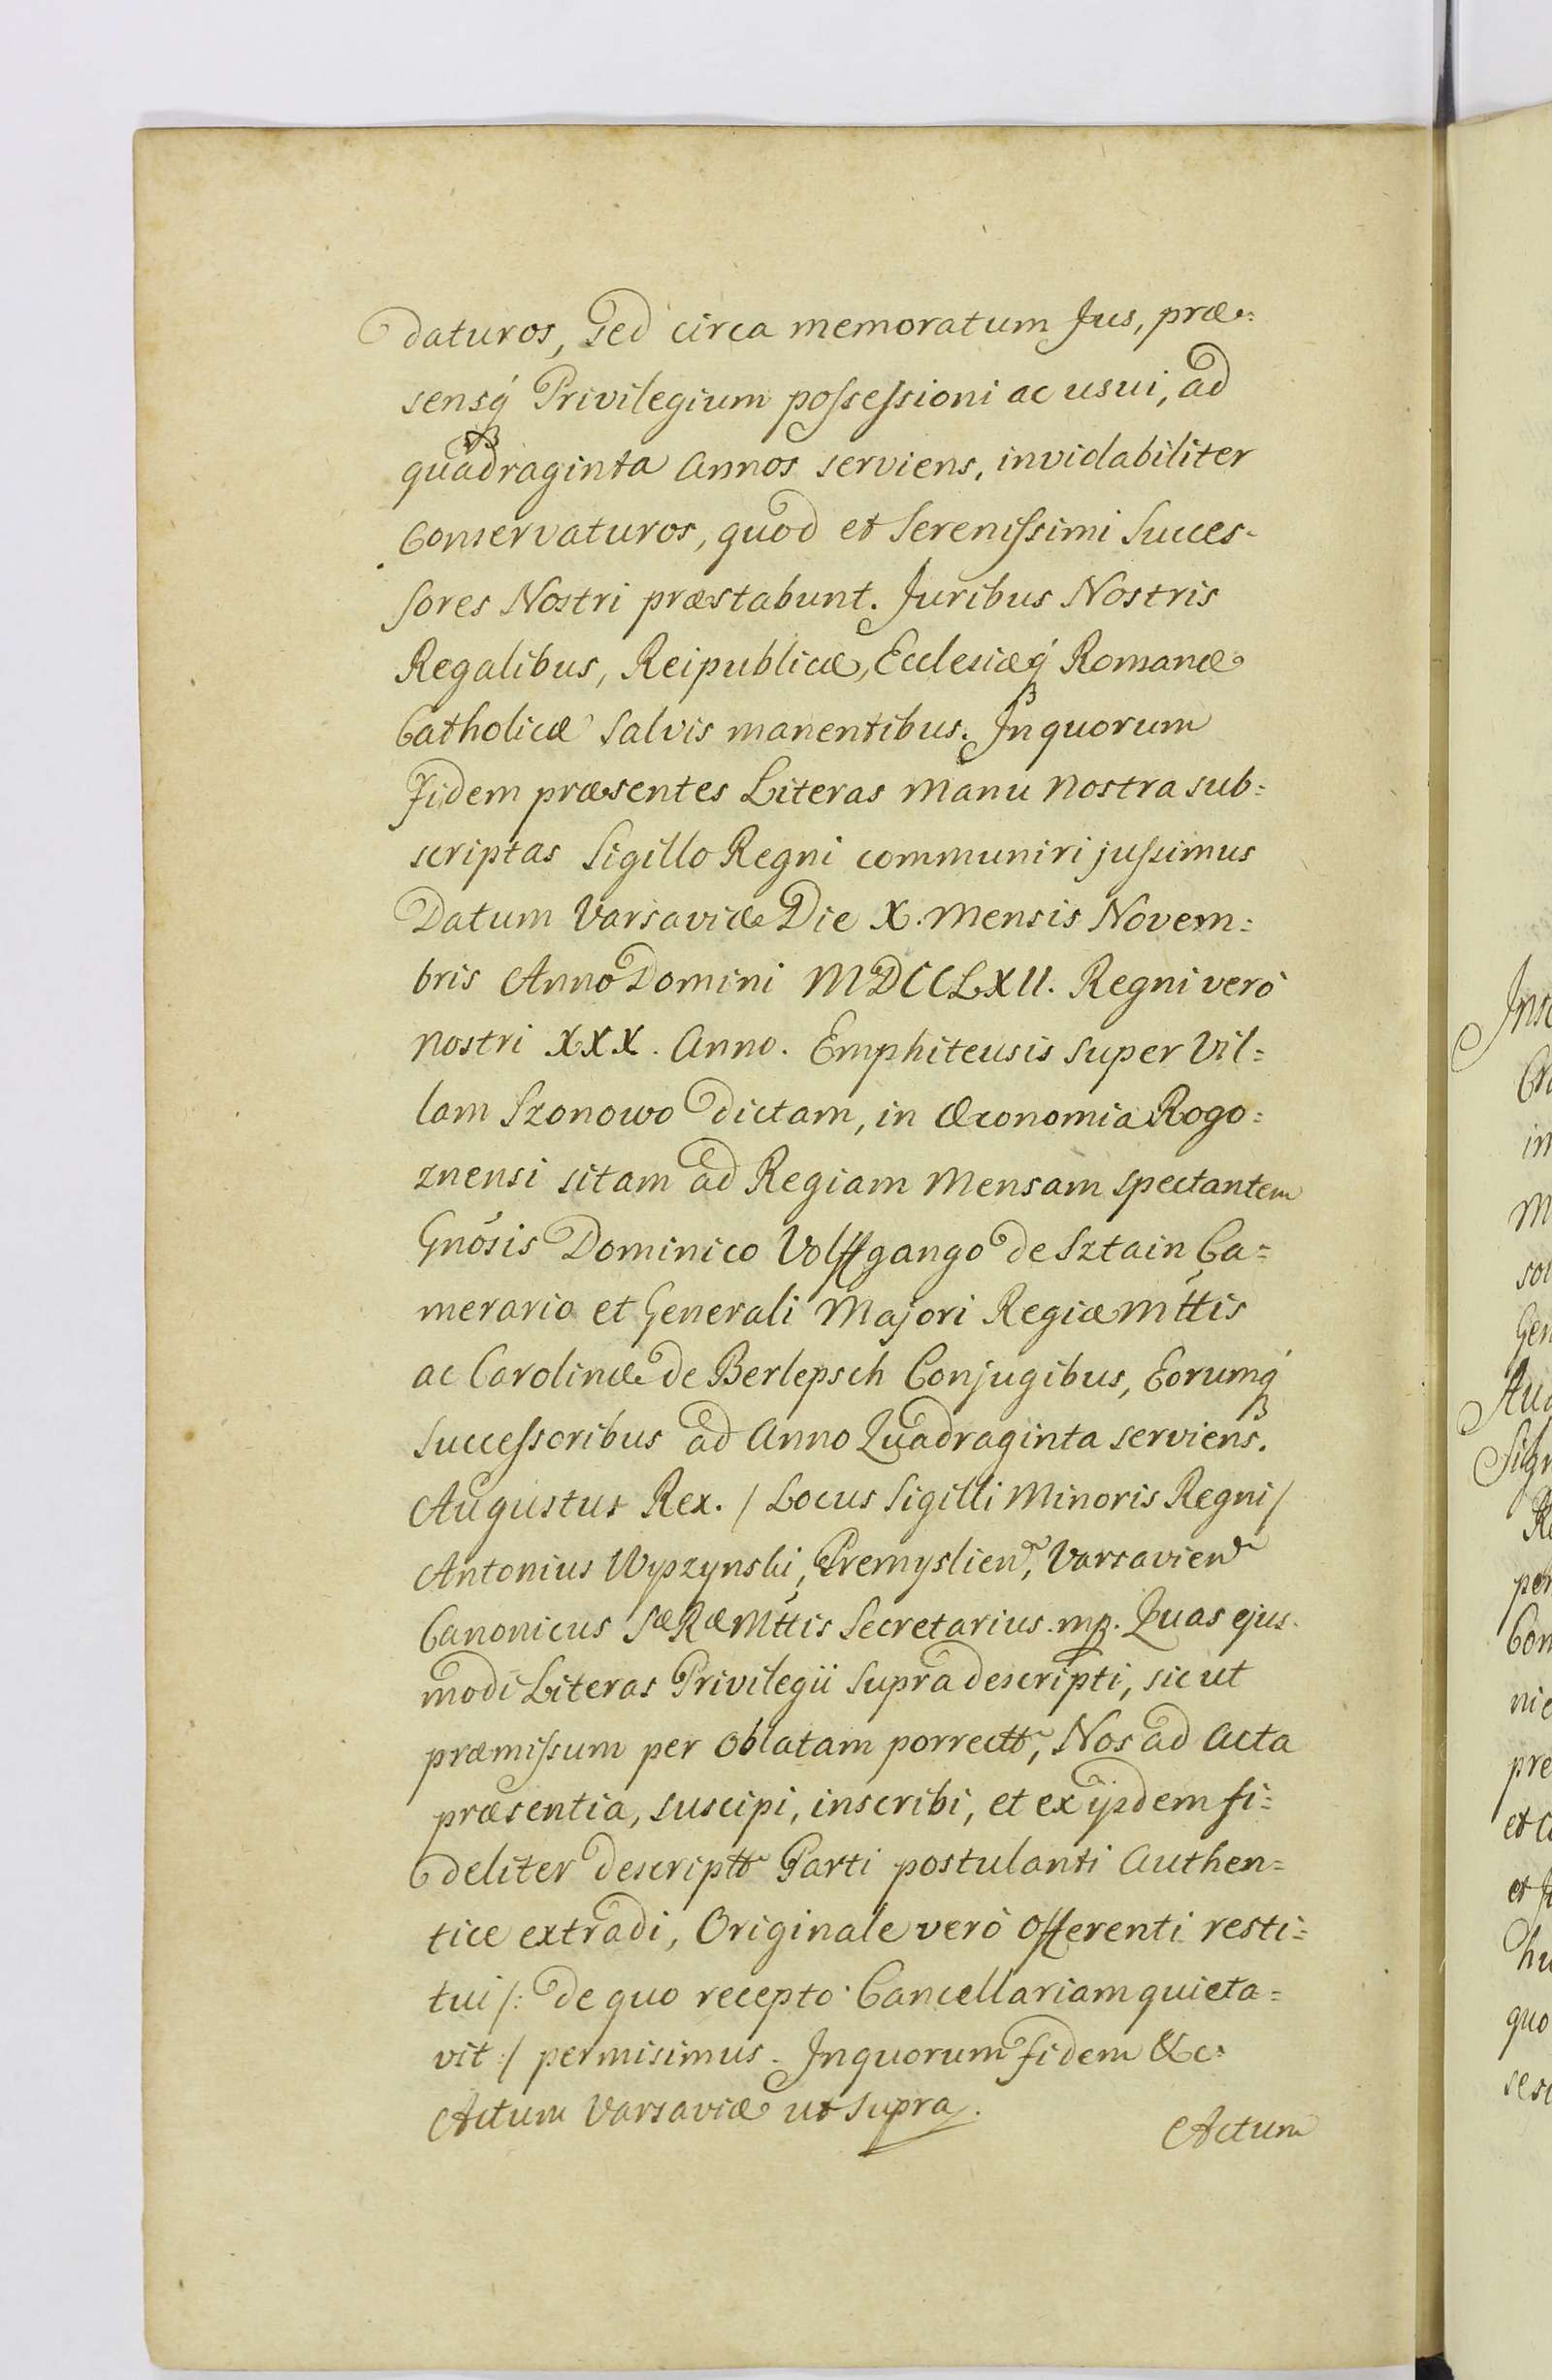 daturos, sed circa memoratum Jus, præ=
sensq́ Privilegium possessioni ac usui, ad
quadraginta Annos serviens, inviolabiliter
Conservaturos, quod et Serenissimi Succes-
sores Nostri præstabunt. Juribus Nostris
Regalibus, Reipublicæ, Ecclesiæq́ Romanæ
Catholicæ Salvis manentibus. In quorum
Fidem præsentes Literas Manu Nostra sub=
scriptas Sigillo Regni communiri jussimus
Datum Varsaviæ Die X. Mensis Novem=
bris Anno Domini MDCCLXII. Regni verò
nostri XXX. Anno. Emphiteusis super Vil=
lam Szonowo dictam, in Œconomia Rogo=
znensi sitam ad Regiam Mensam spectantem
Gnősis Dominico Volffgango de Sztain Ca=
merario et Generali Majori Regiæ Mttis
ac Carolinæ de Berlepsch Conjugibus, Eorumq́
Successoribus ad Anno Quadraginta serviens.
Augustus Rex. / Locus Sigilli Minoris Regni /
Antonius Wyszynski, Premyslien, Varsavien
Canonicus Sæ Ræ Mttis Secretarius. mp. Quas ejus-
modi Literas Privilegii supra descripti, sic ut
præmissum per Oblatam porrectt, Nos ad Acta
præsentia, suscipi, inscribi, et ex ijsdem fi=
deliter descriptt Parti postulanti Authen=
tice extradi, Originale verò Offerenti resti=
tui /: de quo recepto Cancellariam quieta=
vit :/ permisimus. In quorum fidem &c.
Actum Varsaviæ ut supra.
Actum